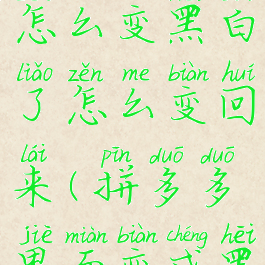 怎么变黑白
liǎo zěn me biàn huí
了怎么变回
lái pīn duō duō
来(拼多多
jiè miàn biàn chéng hēi
界面变成黑